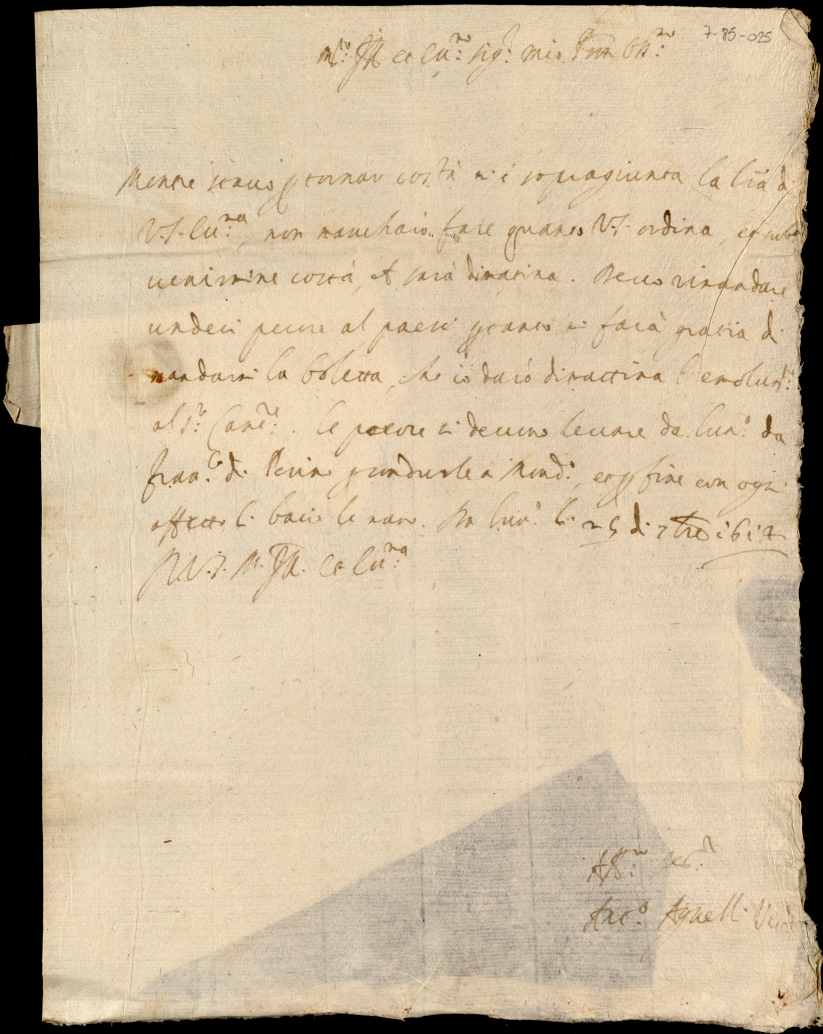 7-85-025
m.to Ill. et Ecc.mo sig.r mio Pron Oss.mo
Mentre stavo p tornar costà m'è sopragiunta la l'ra d
V.S. Ecc.ma, non mancharò fare quanto V.S. ordina, et
venirmene costà, sarà dimatina. Devo rimandare
undeci pecore al paese p tanto mi farà gratia di
mandarmi la boletta, che io darò dimattina l'emolum.to
al S.r Canc.re. Le pecore si devono levare da
fran.co di p condurle a, et p fine con ogni
affetto li bacio le mani. li 25 di 7bre 1612
D V.S. M. Ill. et Ecc.ma
Aff.mo ser.re
Ant.o Agnelli